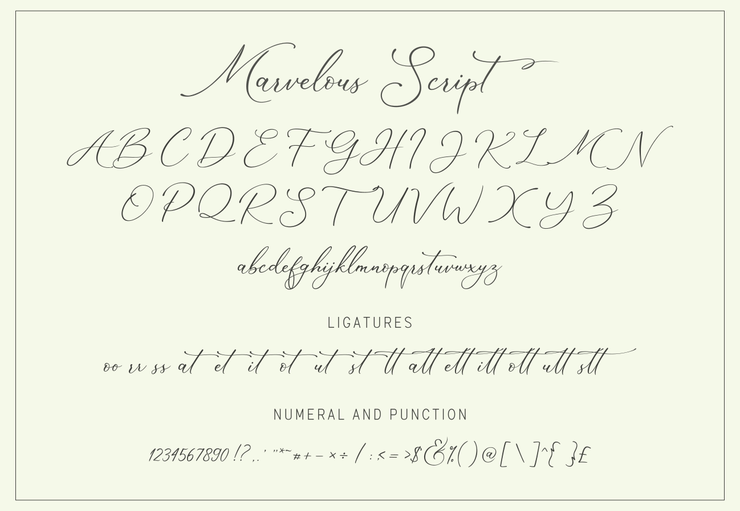 Marvelous Script
ABCDEFGHIJKLMN
OPQRSTUVWXYZ
abcdefghijklmnopqrstuvwxyz
LIGATURES
oo rr ss at et it ot ut st tt att ett itt ott utt stt
NUMERAL AND PUNCTION
1234567890 !? ,. ' "*~ # + - × ÷ / : < = > $ & % ( ) @ [ \ ] ^ { } £